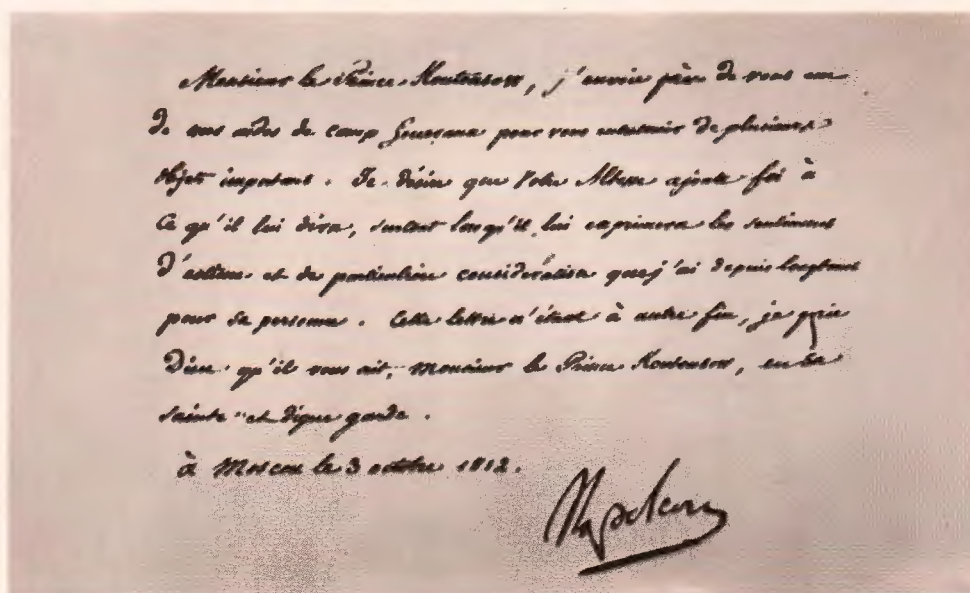 Monsieur le Prince Koutousow, j'envoie près de vous un
de mes aides de camp Generaux pour vous entretenir de plusieurs
objets importans. Je désire que Votre Altesse ajoute foi à
ce qu'il lui dira, surtout lorsqu'il lui exprimera les sentimens
d'estime et de particulière considération que j'ai depuis longtems
pour sa personne. Cette lettre n'étant à autre fin, je prie
Dieu qu'il vous ait, monsieur le Prince Koutousow, en sa
sainte et digne garde.
à Moscou le 3 octobre 1812.
Napoleon